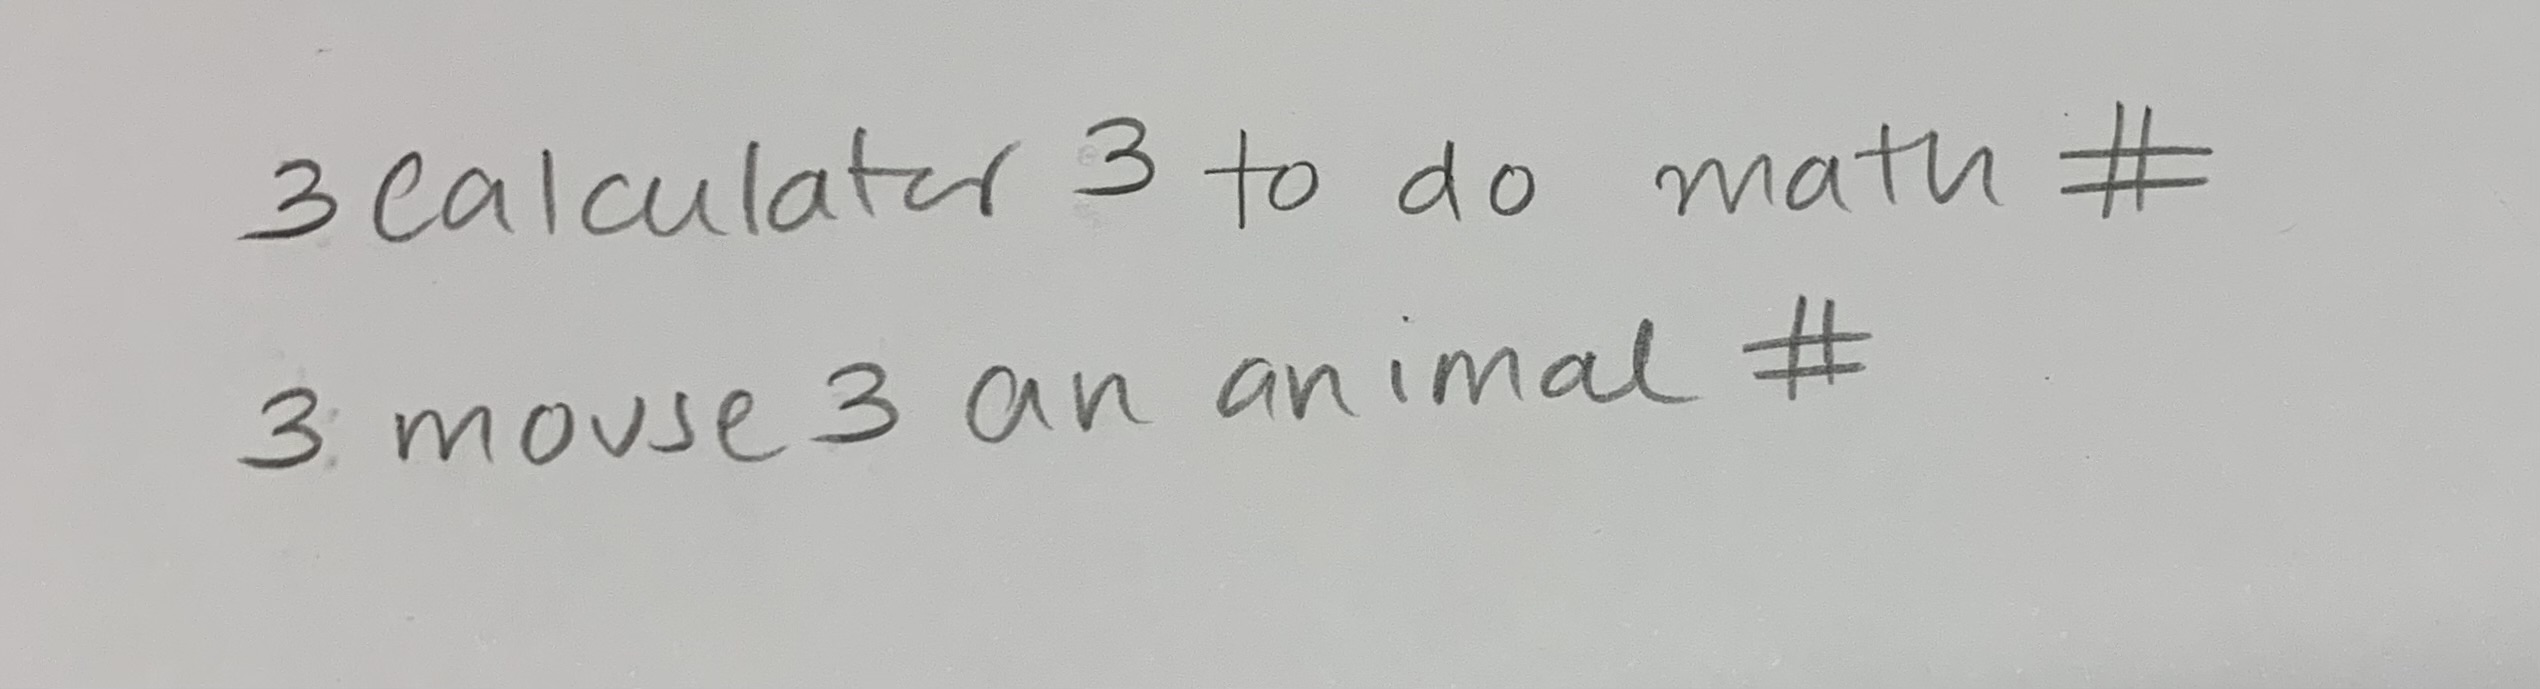 3 calculater 3 to do math #
3 mouse 3 an animal #